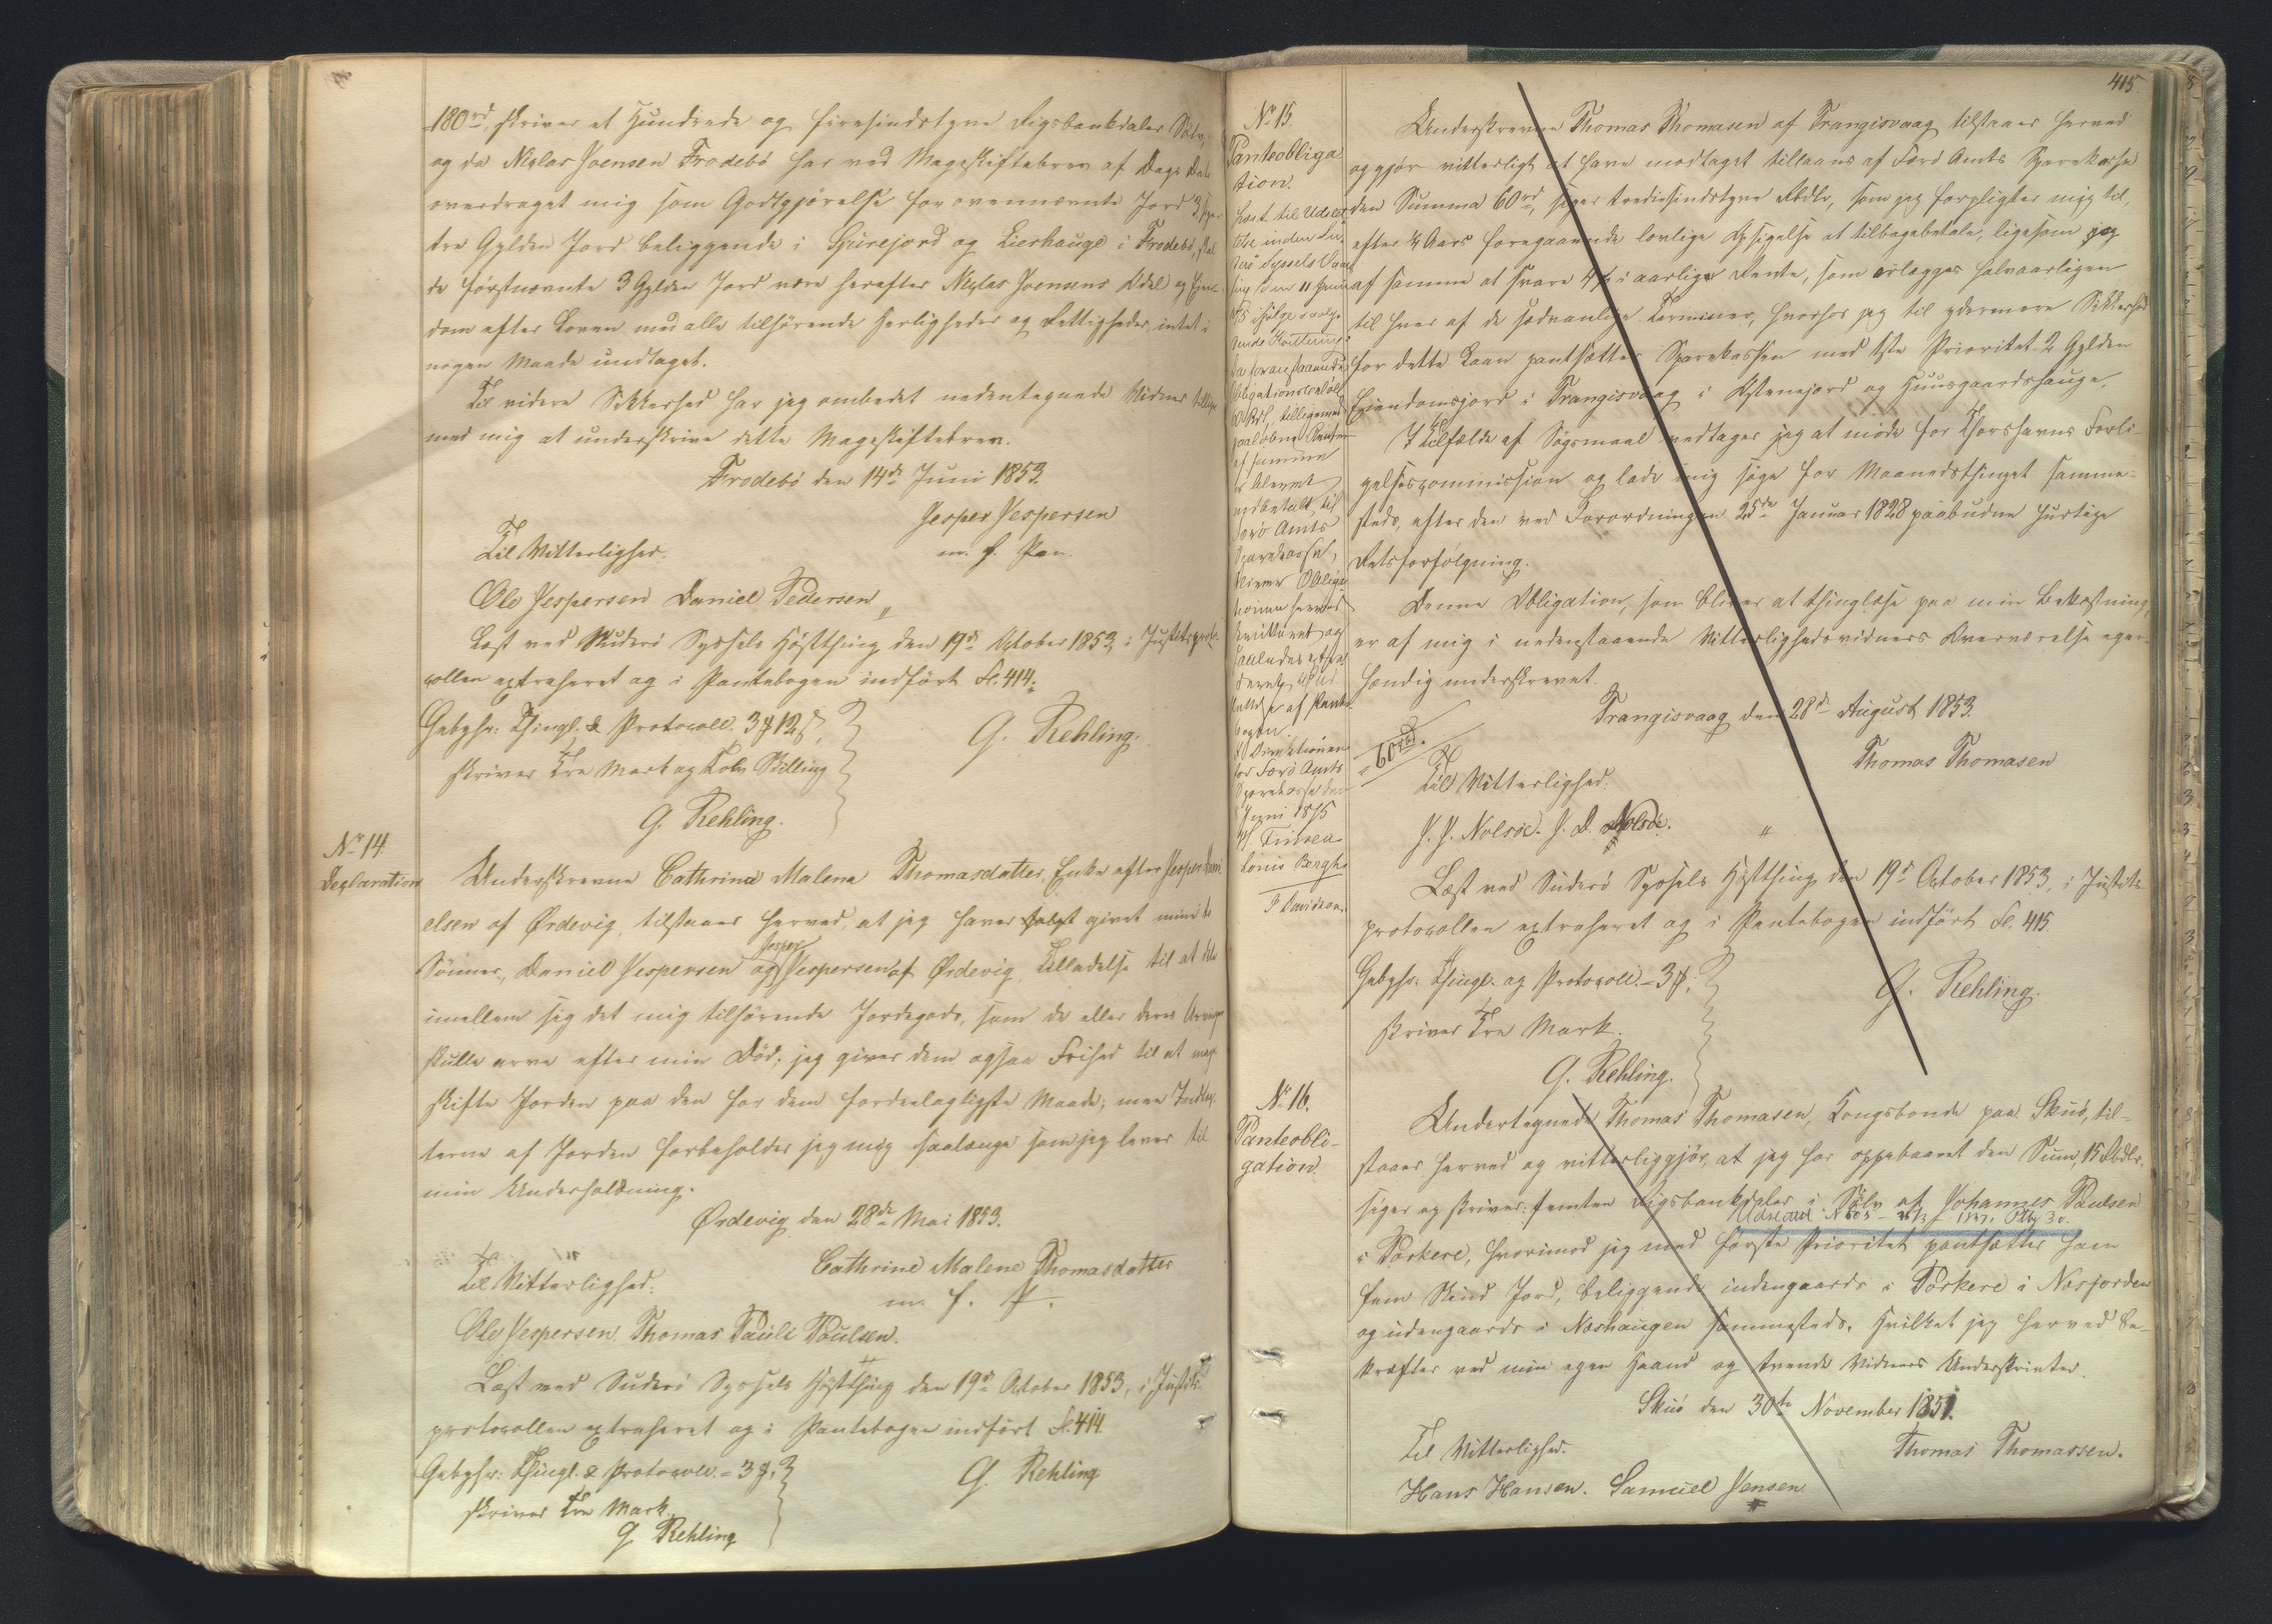 180rd, skriver et Hundrede og firesindstyve Rigsbankdaler Sølv,
og da Niclas Joensen Frodebø har ved Mageskiftebrev af Dags Dato
overdraget mig som Godtgjørelse for ovennævnte Jord 3,
tre Gylden Jord beliggende i Spurejord og Lierhauge i Frodebø, skal
de førstnævnte 3 Gylden Jord være herefter Niclas Joensens Odel og Eien-
dom efter Loven med alle tilhørende Herligheder og Rettigheder, intet i
nogen Maade undtaget.
Til videre Sikkerhed har jeg ombedet nedentegnede Vidner tillige
med mig at underskrive dette Mageskiftebrev.
Frodebø den 14de Juni 1853.
Jesper Jespersen
m. f. Pen.
Til Vitterlighed.
Ole Jespersen Daniel Pedersen
Læst ved Suderø Syssels Høstthing den 19de October 1853, i Justitsproto-
collen extraheret og i Pantebogen indført Fl. 414.
Gebyhr: Thingl. & Protocoll. 3 ℳ 12 ß,
skriver Tre Mark og Tolv Skilling
G. Rehling.
G. Rehling.
No 14
Declaration
Underskrevne Cathrine Malene Thomasdatter, Enke efter Jesper Dani-
elsen af Ørdevig, tilstaaer herved, at jeg haver givet mine to
Sønner, Daniel Jespersen og Jesper Jespersen af Ørdevig Tilladelse til at dele
imellem sig det mig tilhørende Jordegods, som de eller deres Arvinger
skulle arve efter min Død; jeg giver dem ogsaa Frihed til at mage-
skifte Jorden paa den for dem fordeelagtigste Maade; men Indtæg-
terne af Jorden forbeholder jeg mig saalænge som jeg lever til
min Underholdning.
Ørdevig den 28de Mai 1853.
Cathrine Malene Thomasdatter
m. f. P.
Til Vitterlighed:
Ole Jespersen Thomas Pauli Poulsen.
Læst ved Suderø Syssels Høstthing den 19de October 1853, i Justits-
protocollen extraheret og i Pantebogen indført Fl. 414.
Gebyhr: Thingl. & Protocoll. = 3 ℳ,
skriver Tre Mark.
G. Rehling
G. Rehling
415.
No 15.
Panteobliga
tion.
Læst til Udslet-
telse inden Su-
derø Syssels Vaar-
thing den 11 Juni
1875 ifølge saaly-
dende Kvittering:
Da foranstaaende
Obligationsbeløb
60 Rd, tilligemed
paaløbne Renter
af samme
er bleven
udbetalt til
Færø Amts
Sparekasse,
bliver Obliga-
tionen herved
kvitteret og
saaledes
til Ud-
slettelse af Pante-
bogen.
I Directionen
for Færø Amts
Sparekasse den
Juni 1875
H. Finsen
Lønis Bergh
P Davidsen
Underskrevne Thomas Thomasen af Trangisvaag tilstaaer herved
og gjør vitterligt at have modtaget tillaans af Færø Amts Sparekasse
den Summa 60rd, siger tredsindstyve Rbdlr, som jeg forpligter mig til,
efter ¼ Aars foregaaende lovlige Opsigelse at tilbagebetale, ligesom jeg
af samme at svare 4 pC. i aarlige Rente, som erlægges halvaarligen
til hver af de sædvanlige Terminer, hvorhos jeg til ydermere Sikkerhed
for dette Laan pantsætter Sparekassen med 1ste Prioritet 2 Gylden
Eiendomsjord i Trangisvaag i Østenejord og Huusgaardshauge.
I Tilfælde af Søgsmaal vedtager jeg at møde for Thorshavns Forli-
gelsescommission og lade mig søge for Maanedsthinget samme-
steds, efter den ved Forordningen 25de Januar 1828 paabudne hurtige
Retsforfølgning.
Denne Obligation, som bliver at thinglæse paa min Bekostning,
er af mig i nedenstaaende Vitterlighedsvidners Overværelse egen-
hændig underskrevet.
Trangisvaag den 28de August 1853.
Thomas Thomasen
= 60 rbd.
Til Vitterlighed:
J. P. Nolsøe. J. D. Nolsøe.
Læst ved Suderø Syssels Høstthing den 19de October 1853, i Justits-
protocollen extraheret og i Pantebogen indført Fl. 415.
Gebyhr: Thingl. og Protocoll. = 3 ℳ,
skriver Tre Mark.
G. Rehling.
G. Rehling.
No 16.
Panteobli-
gation.
Undertegnede Thomas Thomasen, Kongsbonde paa Skuø, til-
staaer herved og vitterliggjør, at jeg har oppebaaret den Sum, 15 Rbdlr.
siger og skriver: femten Rigsbankdaler i Sølv af Johannes Poulsen
i Porkere, hvorimod jeg med første Prioritet pantsætter ham
fem Skind Jord, beliggende indengaards i Porkere i Nesjorden
og udengaards i Neshaugen sammesteds, hvilket jeg herved be-
kræfter ved min egen Haand og tvende Vidners Underskrivter.
Skuø den 30te November 1851.
Til Vitterlighed.
Thomas Thomassen.
Hans Hansen. Samuel Jensen